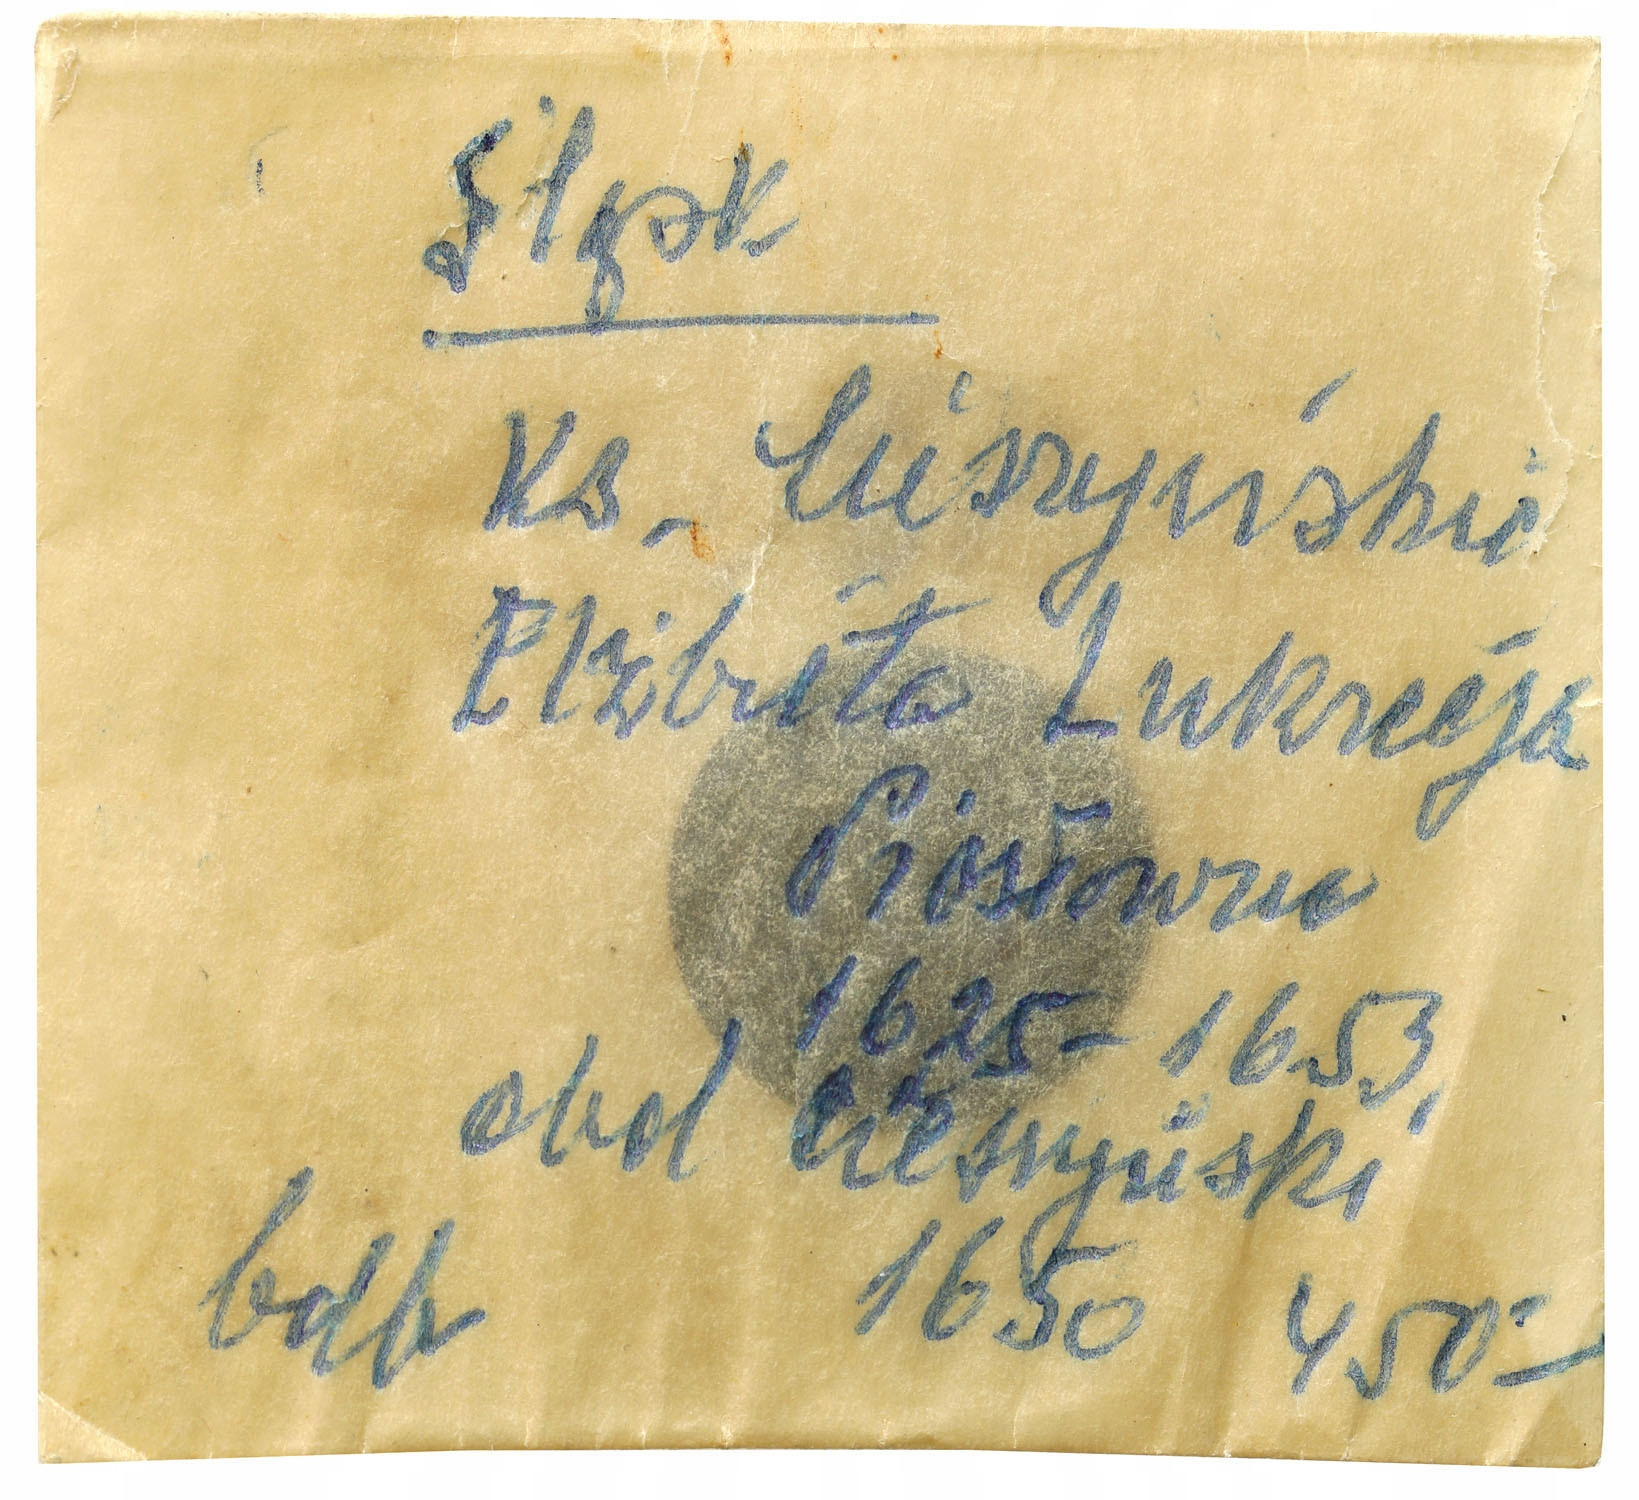 Śląsk
Ks. Cieszyńskie
Elżbieta Lukrecja
Piastówna
1625-1653,
obol Cieszyński
bdb 1650 450-